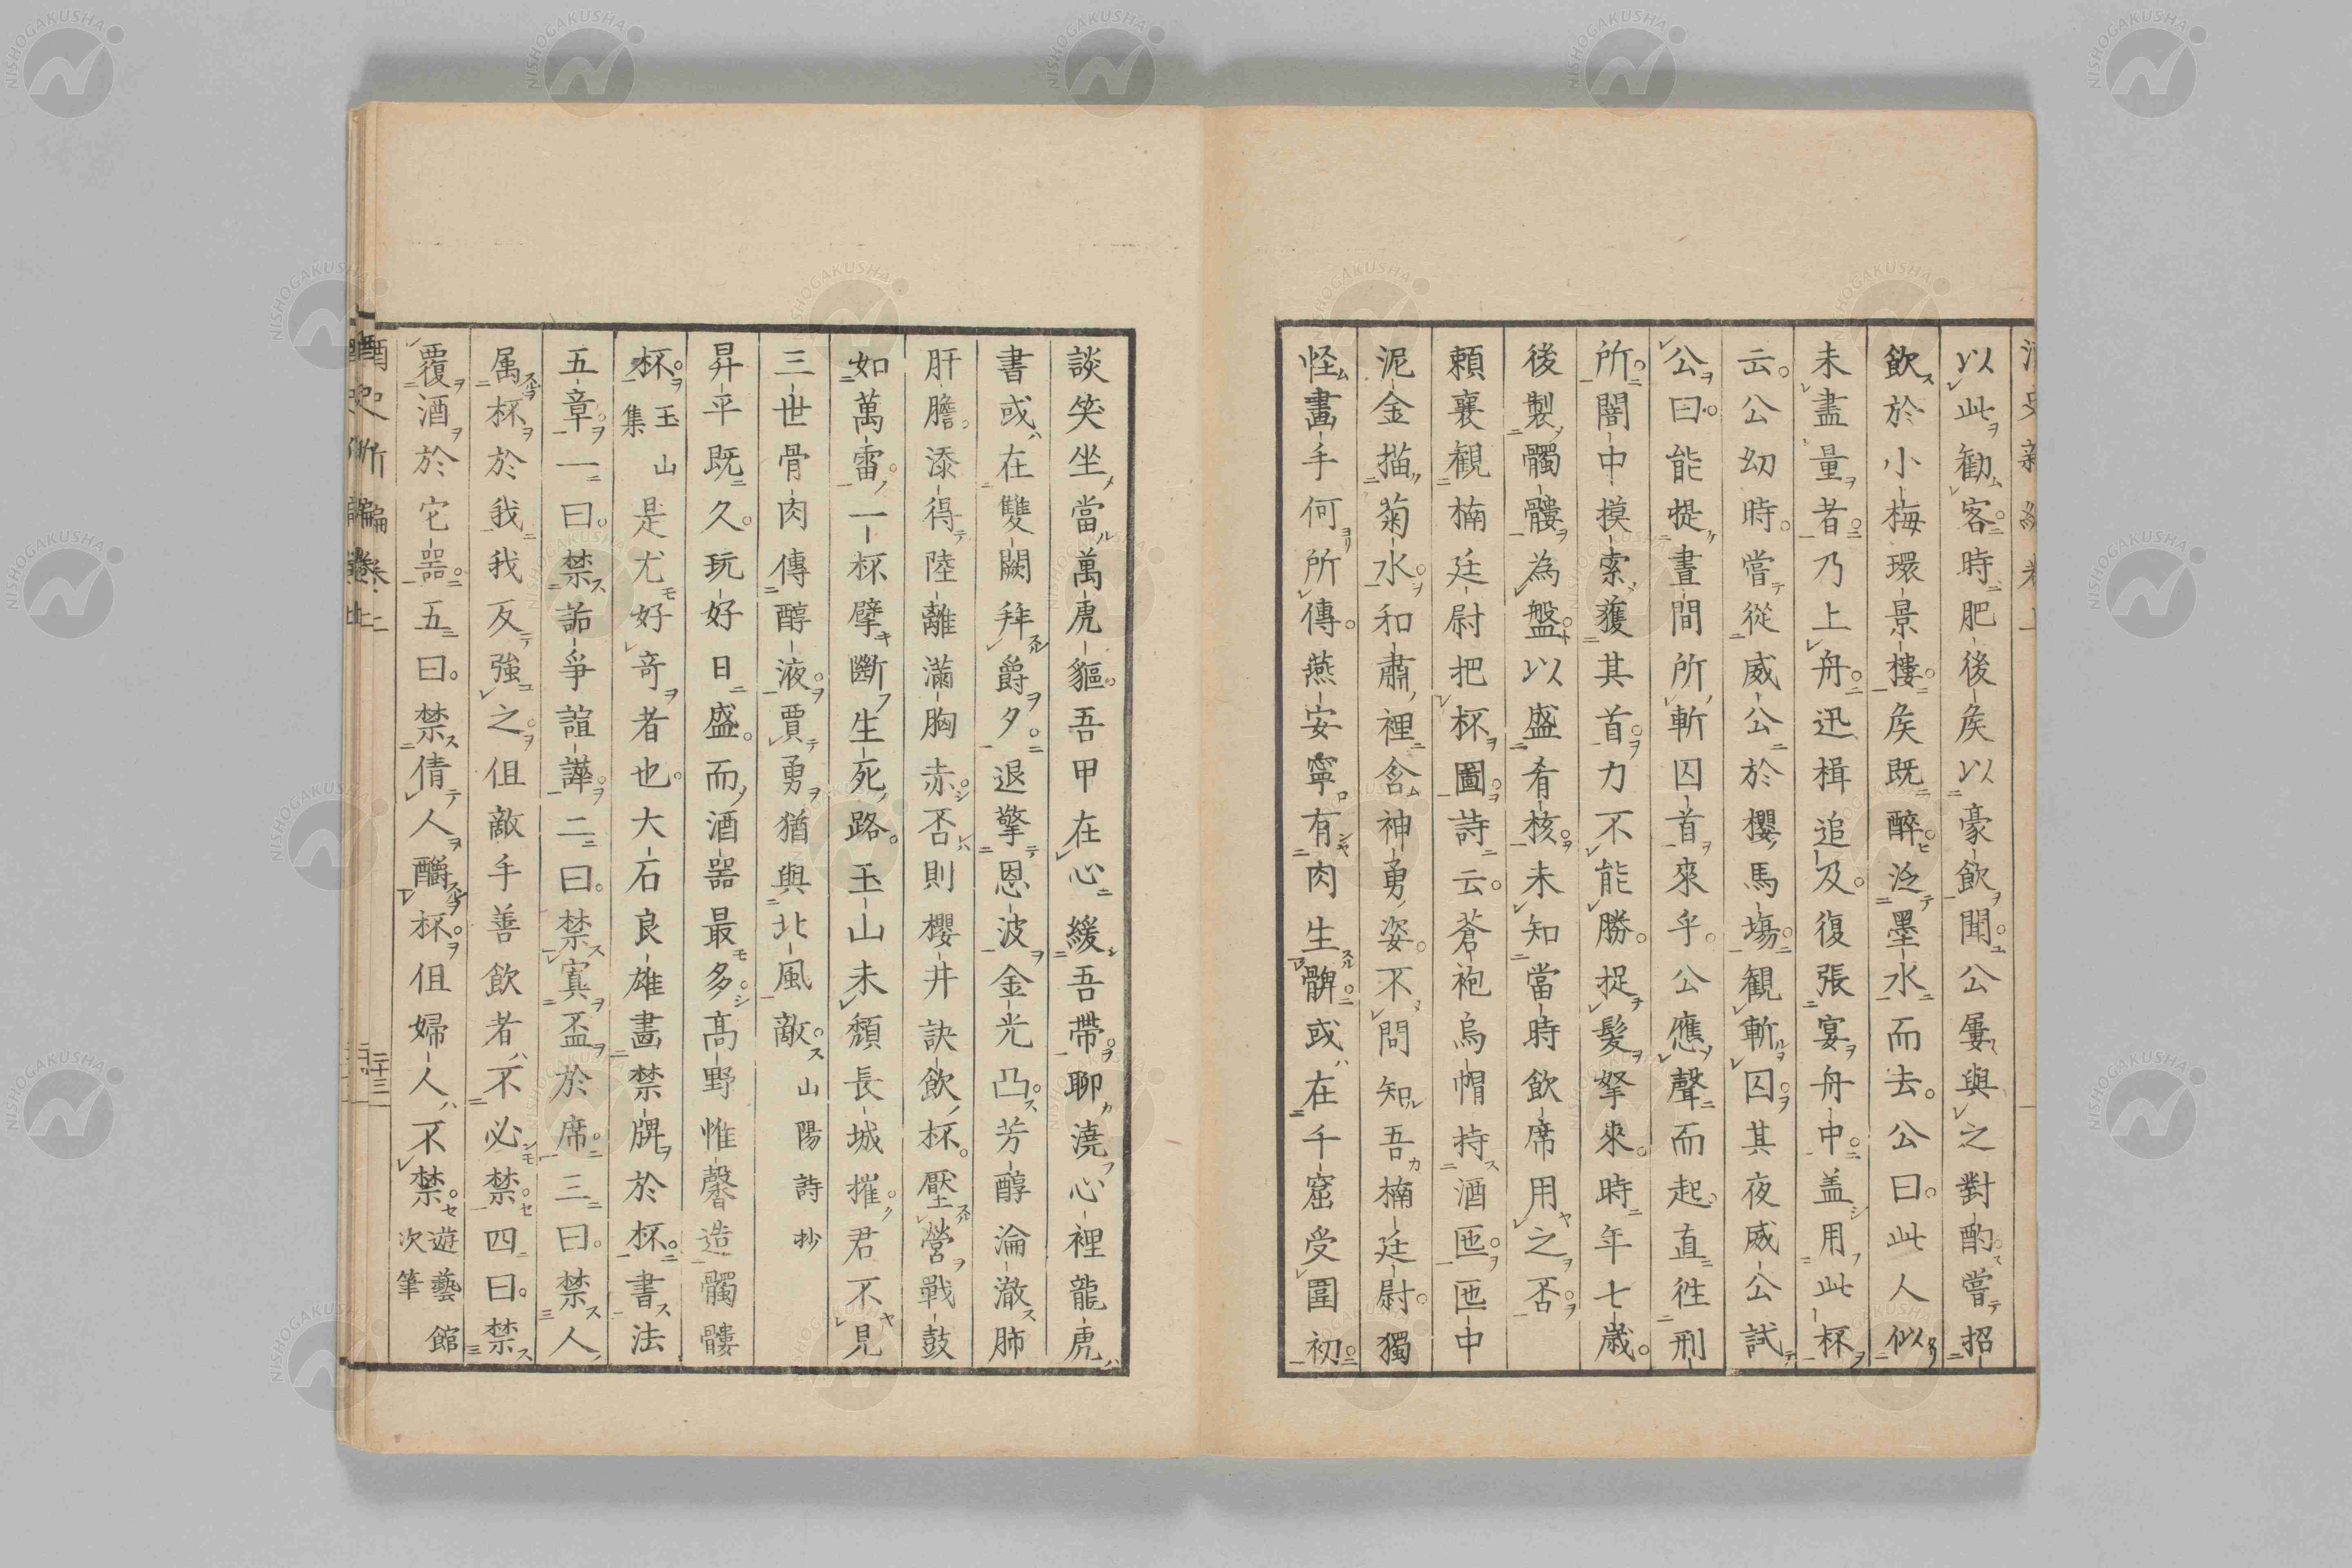 以此勸客。時肥後矦以豪飲聞。公屢與之對酌。嘗招
飲於小梅環景樓。矦既醉。泛墨水而去。公曰。此人似
未盡量者。乃上舟。迅楫追及。復張宴舟中。盖用此杯
云。公幼時。嘗從威公於櫻馬塲。観斬囚。其夜威公試
公曰。能提晝間所斬囚首來乎。公應聲而起。直徃刑
所。闇中摸索獲其首。力不能勝。捉髮拏來。時年七歳。
後製髑髏為盤。以盛肴核。未知當時飲席用之否。
頼襄観楠廷尉把杯圖詩云。蒼袍烏帽持酒匜。匜中
泥金描菊水。和肅裡含神勇姿。不問知吾楠廷尉。獨
怪畫手何所傳。燕安寧有肉生髀。或在千窟受圍初
談笑坐當萬虎貙。吾甲在心緩吾帶。聊澆心裡龍虎
書。或在雙闕拜爵夕。退擎恩波金光凸。芳醇淪澈肺
肝膽。添得陸離滿胸赤。否則櫻井訣飲杯。壓營戰鼓
如萬雷。一杯擘斷生死路。玉山未頹長城摧。君不見
三世骨肉傳醇液。賈勇猶與北風敵。山陽詩抄
昇平既久。玩好日盛。而酒噐最多。髙野惟馨造髑髏
杯。玉山集是尤好竒者也。大石良雄畵禁牌於杯。書法
五章。一曰。禁詬爭諠譁。二曰。禁寘盃於席。三曰。禁人
属杯於我我反強之。但敵手善飲者。不必禁。四曰。禁
覆酒於它噐。五曰。禁倩人釂杯。但婦人不禁。遊藝館次筆
酒史新編卷上
二十三